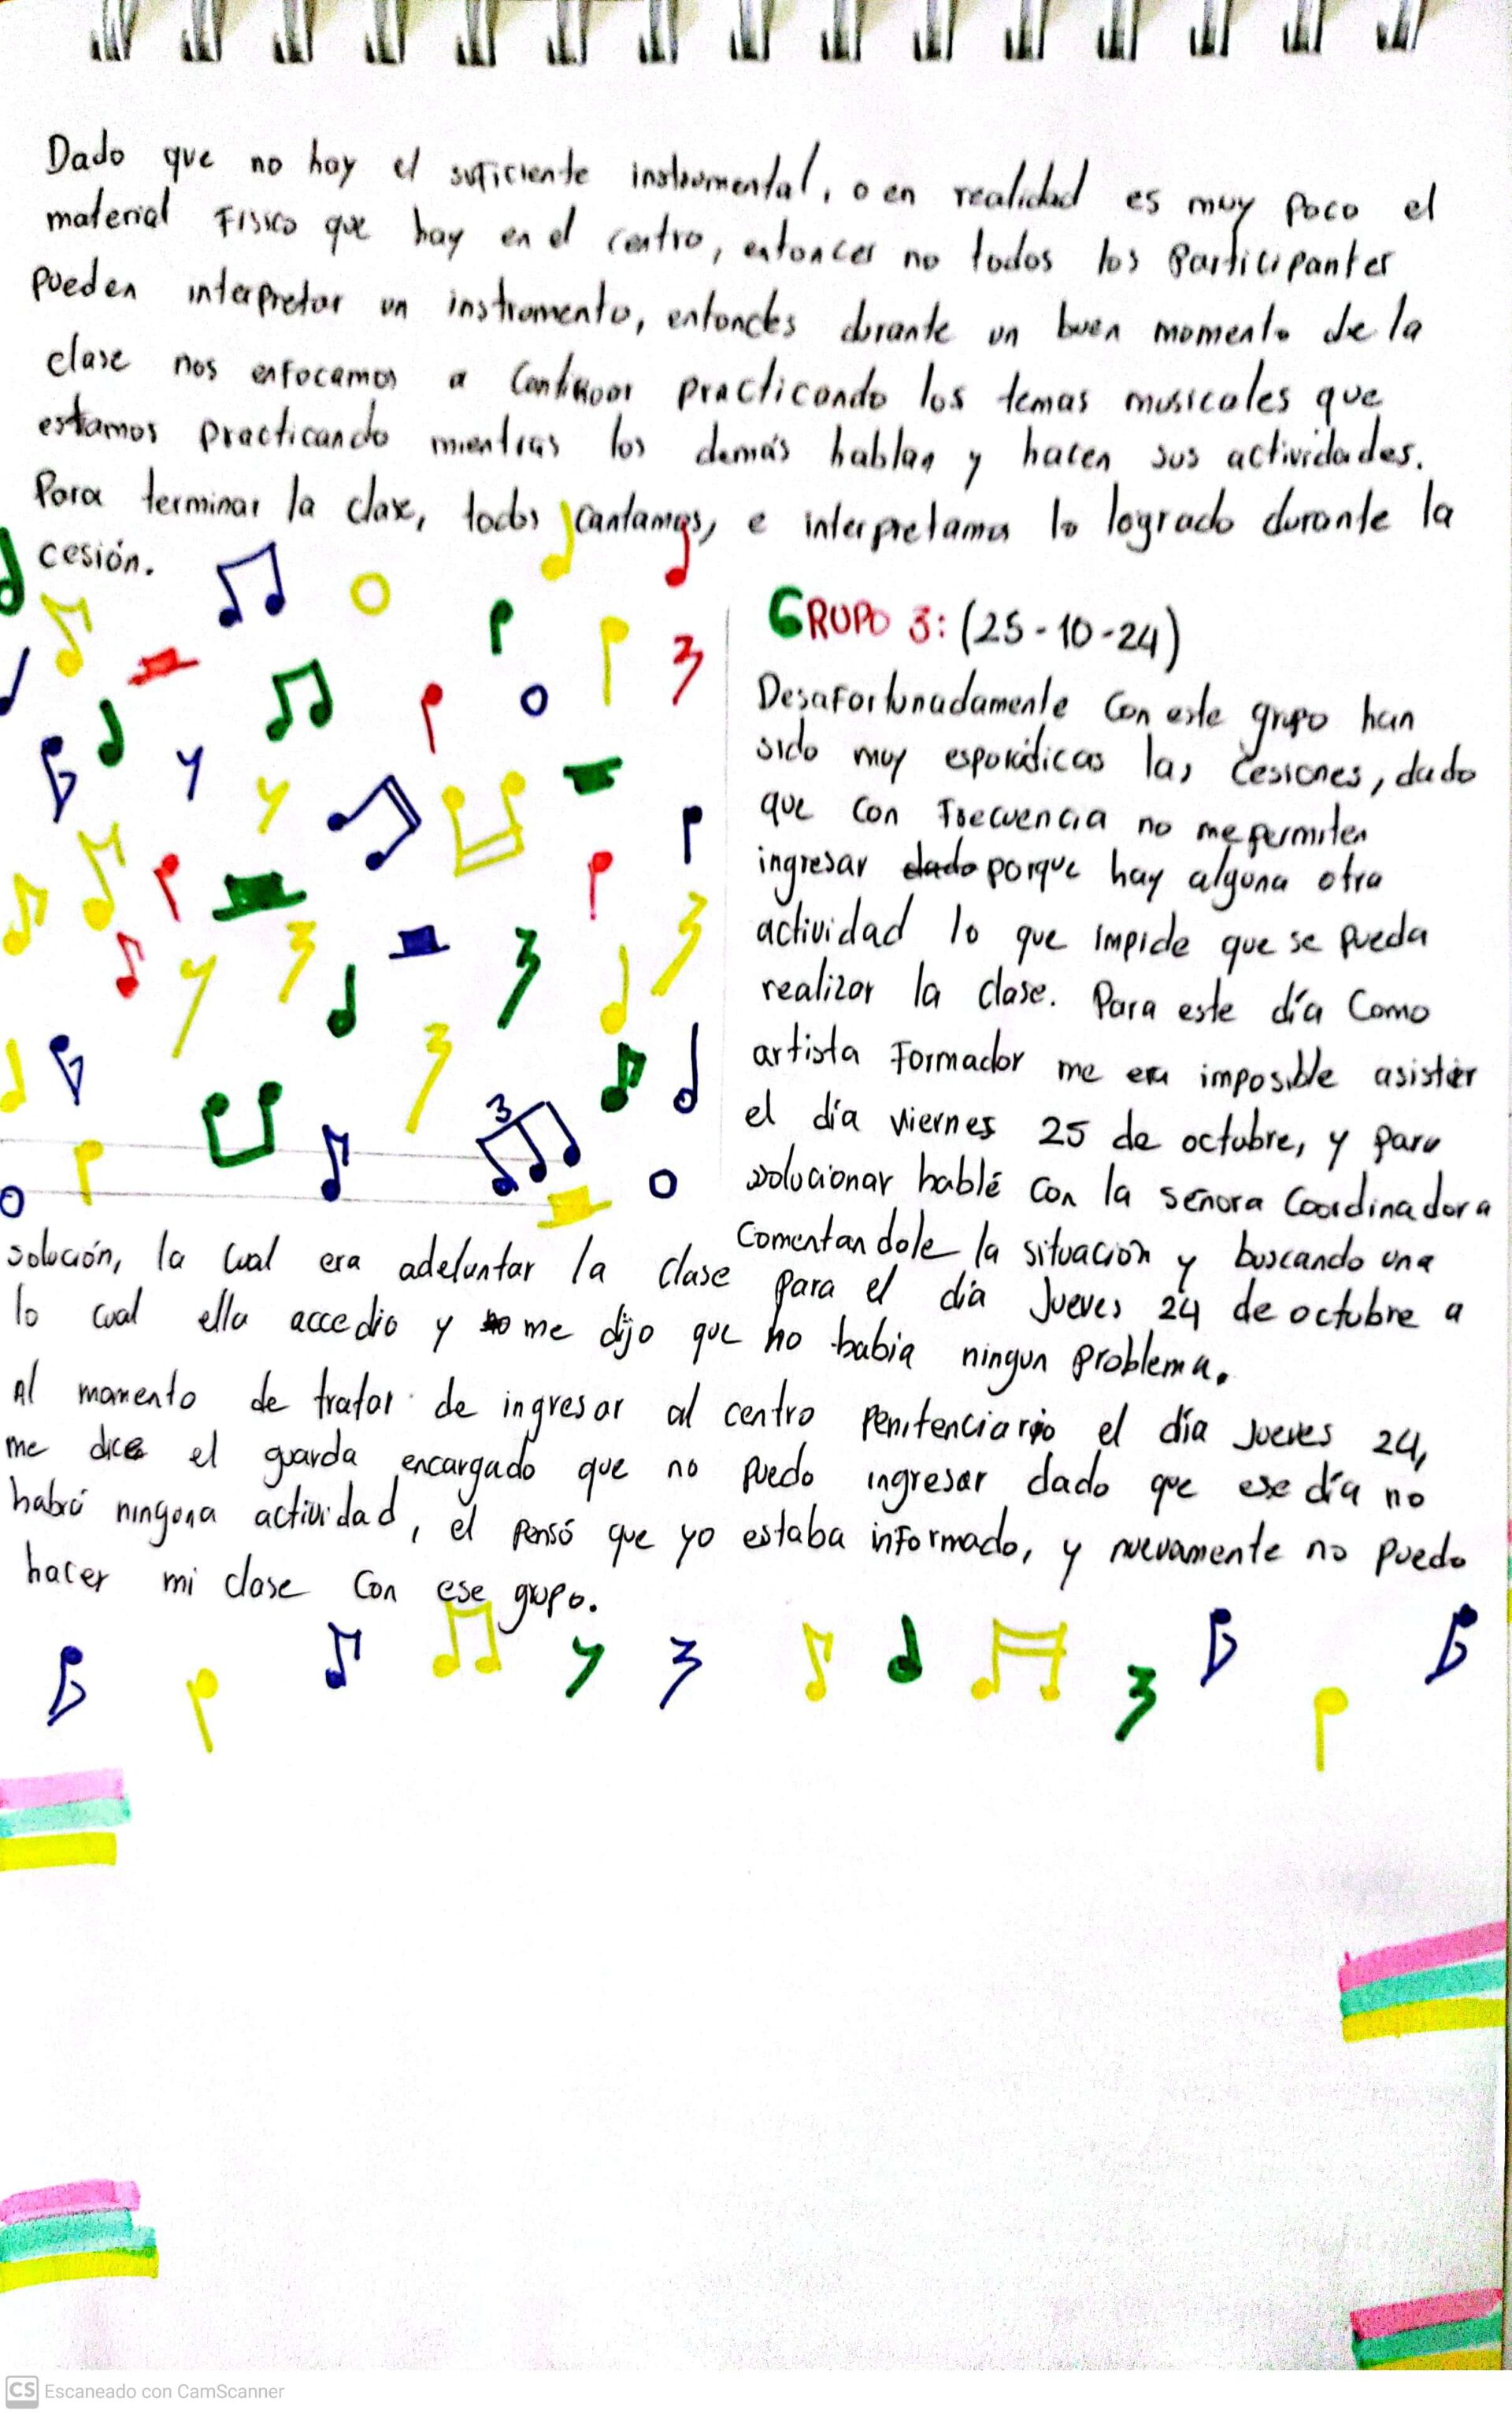 Dado que no hay el suficiente instrumental, o en realidad es muy poco el
material Fisico que hay en el centro, entonces no todos los Participantes
pueden interpretar un instrumento, entonces durante un buen momento de la
clase nos enfocamos a Continuar practicando los temas musicales que
estamos practicando mientras los demás hablan y hacen sus actividades.
Para terminar la clase, todos cantamos, e interpretamos lo logrado durante la
cesión.
GRUPO 3: (25-10-24)
Desafortunadamente Con este grupo han
sido muy esporádicas las Cesiones, dado
que con Frecuencia no me permiten
ingresar dado porque hay alguna otra
actividad lo que impide que se pueda
realizar la clase. Para este día Como
artista Formador me era imposible asistir
el día viernes 25 de octubre, y para
solucionar hablé con la señora Coordinadora
Comentandole la situación y buscando una
solución, la cual era adelantar la clase para el día Jueves 24 de octubre a
lo cual ella accedio y no me dijo que no habia ningun problema.
Al momento de tratar de ingresar al centro penitenciario el día Jueves 24,
me dice el guarda encargado que no puedo ingresar dado que ese día no
habrá ninguna actividad, el pensó que yo estaba informado, y nuevamente no puedo
hacer mi clase Con ese grupo.
3
CS Escaneado con CamScanner